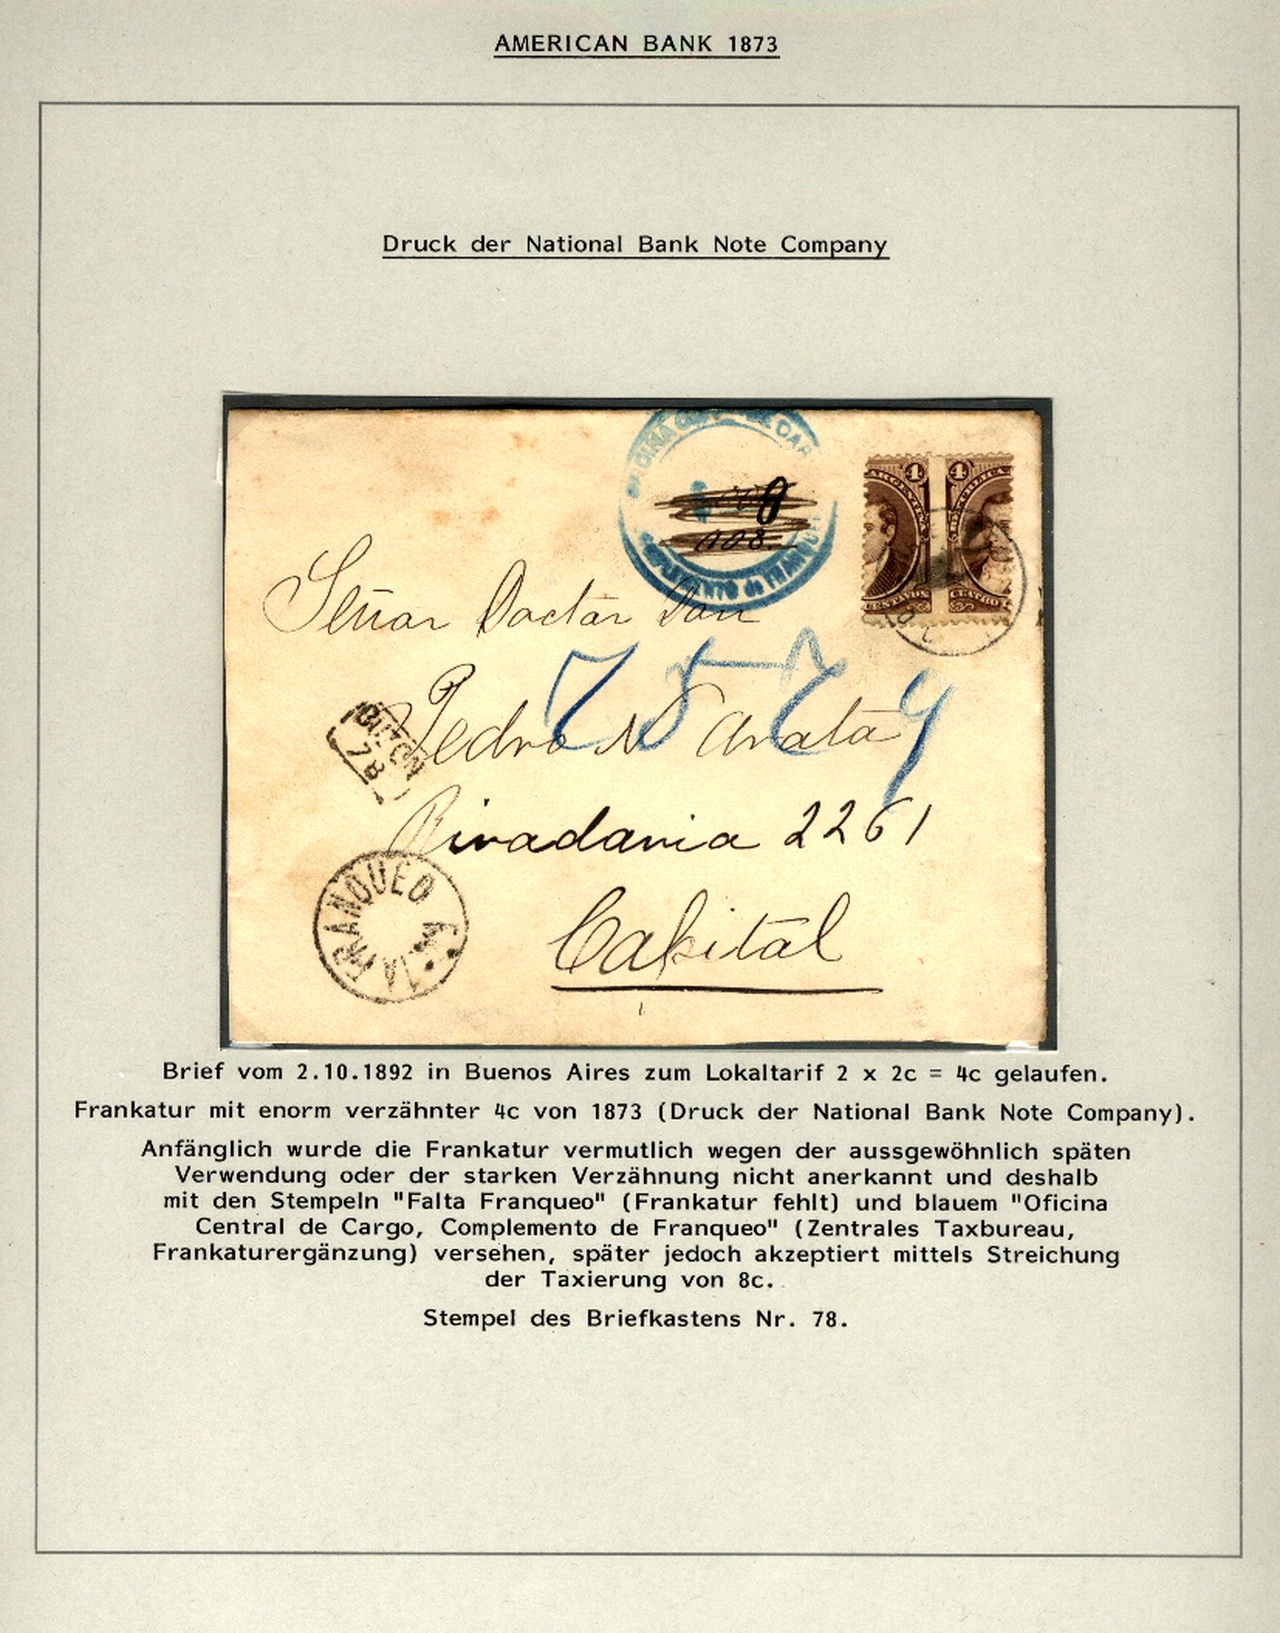 AMERICAN BANK 1873
Druck der National Bank Note Company
OFICINA DE CAR
8
COMPLEMENTO de FRANQUEO
4 4
CENTAVOS CENTAVO
Señor Doctor Don
7 5 7 4
Pedro N Arata
BUZON
78
Rivadavia 2261
FRANQUEO
Capital
Brief vom 2.10.1892 in Buenos Aires zum Lokaltarif 2 x 2c = 4c gelaufen.
Frankatur mit enorm verzähnter 4c von 1873 (Druck der National Bank Note Company).
Anfänglich wurde die Frankatur vermutlich wegen der aussgewöhnlich späten
Verwendung oder der starken Verzähnung nicht anerkannt und deshalb
mit den Stempeln "Falta Franqueo" (Frankatur fehlt) und blauem "Oficina
Central de Cargo, Complemento de Franqueo" (Zentrales Taxbureau,
Frankaturergänzung) versehen, später jedoch akzeptiert mittels Streichung
der Taxierung von 8c.
Stempel des Briefkastens Nr. 78.